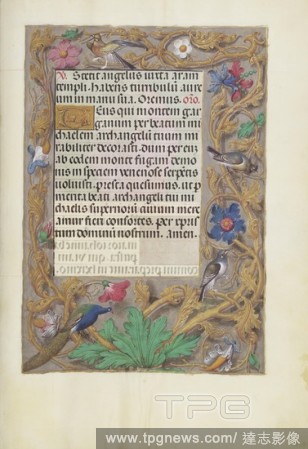 V. Stetit angelus iuxta aram
templi. habens turibulū aure
um in manu sua. Oremus. oro.
Deus qui montem gar
ganum per beatum mi
chaelem archangelū tuum mi
rabiliter decorasti. dum per eun
dem monte fugam demo
nis in speciem venenose serpētis
voluisti. presta quesumus. ut p
menta beati archangeli tui mi
chaelis supernorū civium mere
amur fieri consortes. per xpistū
dominū nostrum. amen.
TPG
www.tpgnews.com/達志影像